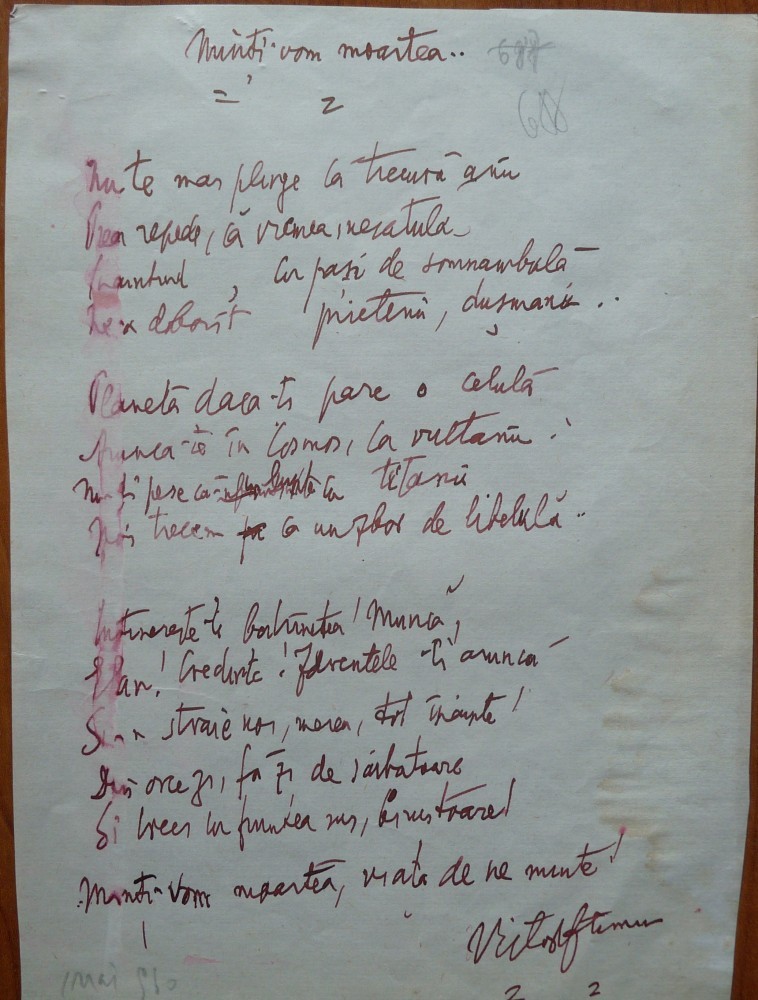 Minți-vom moartea..
618
Nu te mai plânge că trecură anii
Prea repede, că vremea, nesătulă
Înaintând, cu pași de somnambulă
Ne-a doborât prietenii, dușmanii..
Planetă dacă-ți pare o celulă
Aruncă-te în Cosmos, ca vultanii
Nu-ți pese că titanii
Noi trecem ca un zbor de libelulă..
Întinerește-ți bătrînețea! Muncă,
Elan! Credință! Zdrențele -ți aruncă
Și-n straie noi, mereu, tot înainte!
Din orce zi, fă zi de sărbătoare
Și treci cu fruntea sus,
Minți-vom moartea, viața de ne minte!
Victor Eftimiu